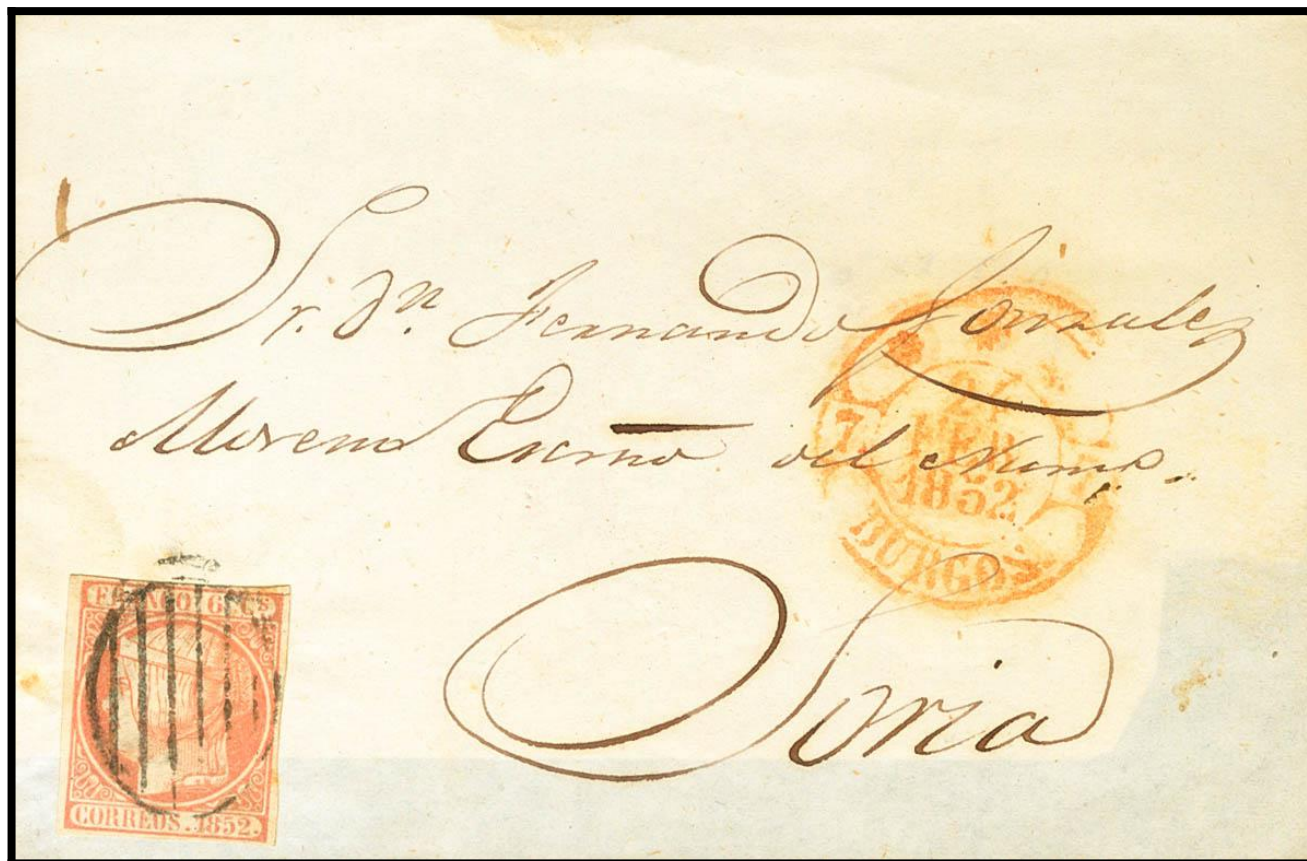 Sr. Dn. Fernando Gonzalez
Moreno Escrno del Numo.
Soria
7.
FEB
1852
BURGOS
FRANCO. 6 Cs
CORREOS. 1852.